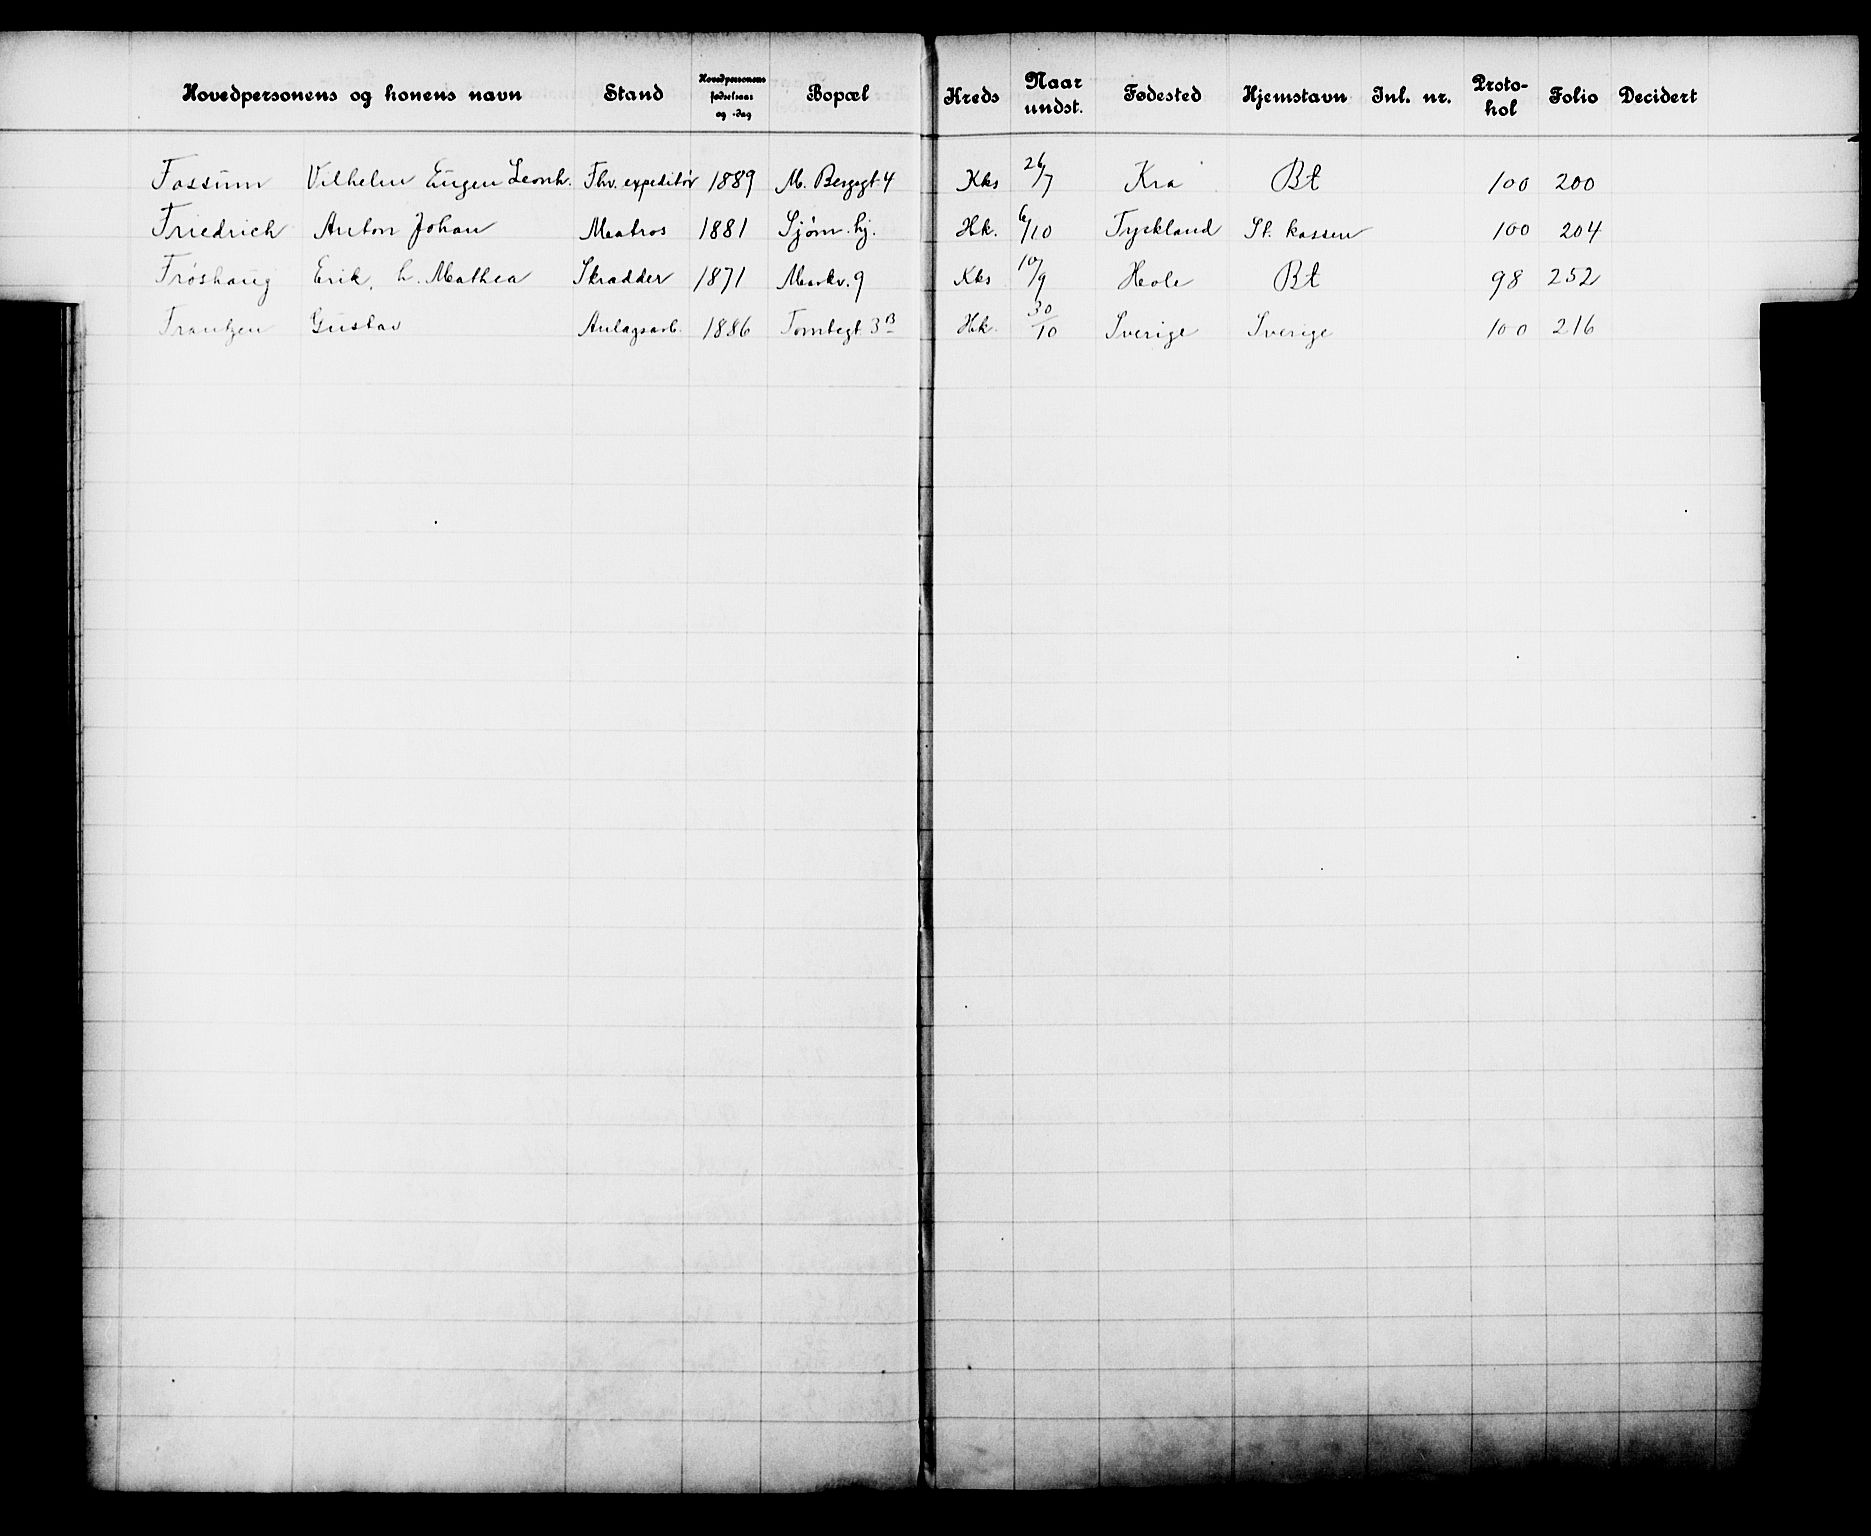 Hovedpersonens og konens navn Stand Hovedpersonens fødselsaar og -dag Bopæl Kreds Naar undst. Fødested Hjemstavn Inl. nr. Proto-kol Folio Decidert
Fossum Vilhelm Eugen Leonh. Fhv. expeditør 1889 M. Bergsgt. 4 Kks 26/7 Kra Bt 100 200
Friedrich Anton Johan Matros 1881 Sjøm. hj. Hk. 6/10 Tyskland St. kassen 100 204
Frøshaug Erik, h. Mathea Skrædder 1871 Markv. 9 Kks 10/9 Hole Bt 98 252
Frantzen Gustav Anlægsarb. 1886 Tomtegt 3B Hk. 30/10 Sverige Sverige 100 216